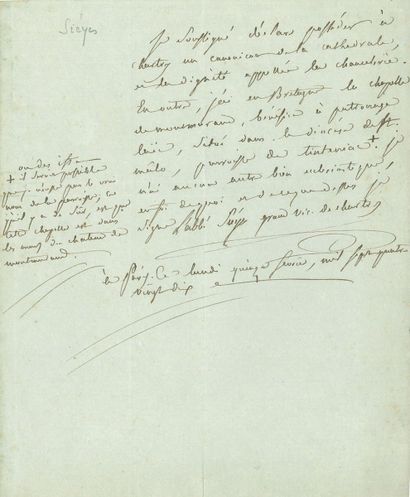 Siéyes
Je soussigné déclare posséder à
chartres un canonicat de la cathedrale,
et la dignité appellée la chancelerie.
En outre, j'ai en Bretagne la chapelle
de monmorand, bénéfice à patronage
laïc, situé dans le diocèse de St.
malo, parroisse de tinteniac +. Je
n'ai aucun autre bien ecclesiastique,
en foi de quoi et de ce que dessus je
signe L'abbé Sieyes grand vic. de chartres
à Paris ce lundi quinze fevrier, mil sept quatre
vingt dix
+ il seroit possible
que
nom de la parroisse, ce
qu'il y a de sûr, est que
cette chapelle est dans
les murs du chateau de
montmorand.